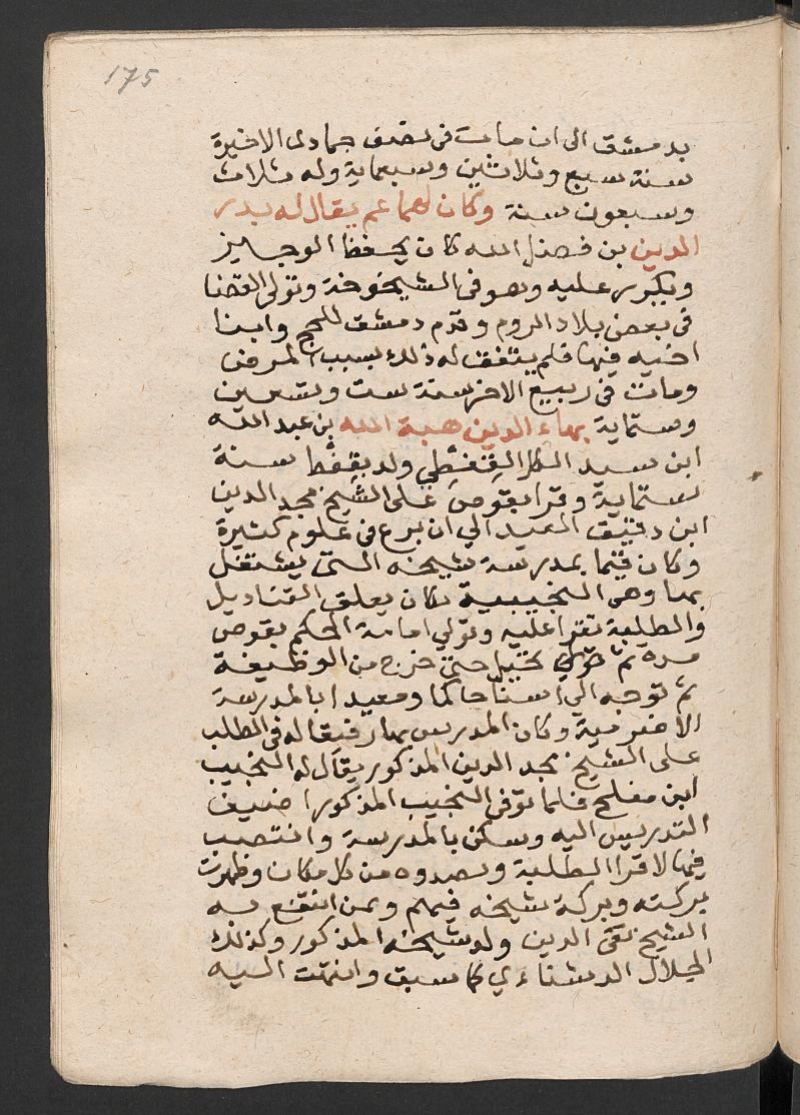 175
بدمشق الى ان مات فى نصف جمادى الاخيرة
سنة سبع وثلاثين وسبعماية وله ثلاث
وسبعون سنة وكان لهما عم يقال له بدر
الدين بن فضل الله كان يحفظ الوجايز
ويكرر عليه وهو فى الشيخوخة وتولى القضا
فى بعض بلاد الروم وقدم دمشق للحج وابنا
اخيه فيها فلم يتفق له ذلك بسبب المرض
ومات فى ربيع الاخر سنة ست وتسعين
وستماية بهاء الدين هبة الله بن عبد الله
ابن سيد الكل القِفْطِي ولد بقِفْط سنة
ستماية وقرا بقوص على الشيخ مجد الدين
ابن دقيق العيد الي ان برع فى علوم كثيرة
وكان قيما بمدرسة شيخه التى يشتغل
بها وهى النجيبية فكان يعلق القناديل
والطلبة تقرا عليه وتولي امامة الحكم بقوص
مرة ثم حتى خرج من الوظيفة
ثم توجه الي اسنا حاكما ومعيدا بالمدرسة
الافرمية وكان المدرس بها رفيقا له فى الطلب
على الشيخ مجد الدين المذكور يقال له النجيب
ابن مفلح فلما توفى النجيب المذكور اضيف
التدريس اليه وسكن بالمدرسة وانتصب
فيها لاقرا الطلبة وقصدوه من كل مكان وظهرت
بركته وبركة شيخه فيهم وممن انتفع به
الشيخ تقى الدين ولد شيخه المذكور وكذلك
الجلال الدشناءي كما سبق وانتهت اليه